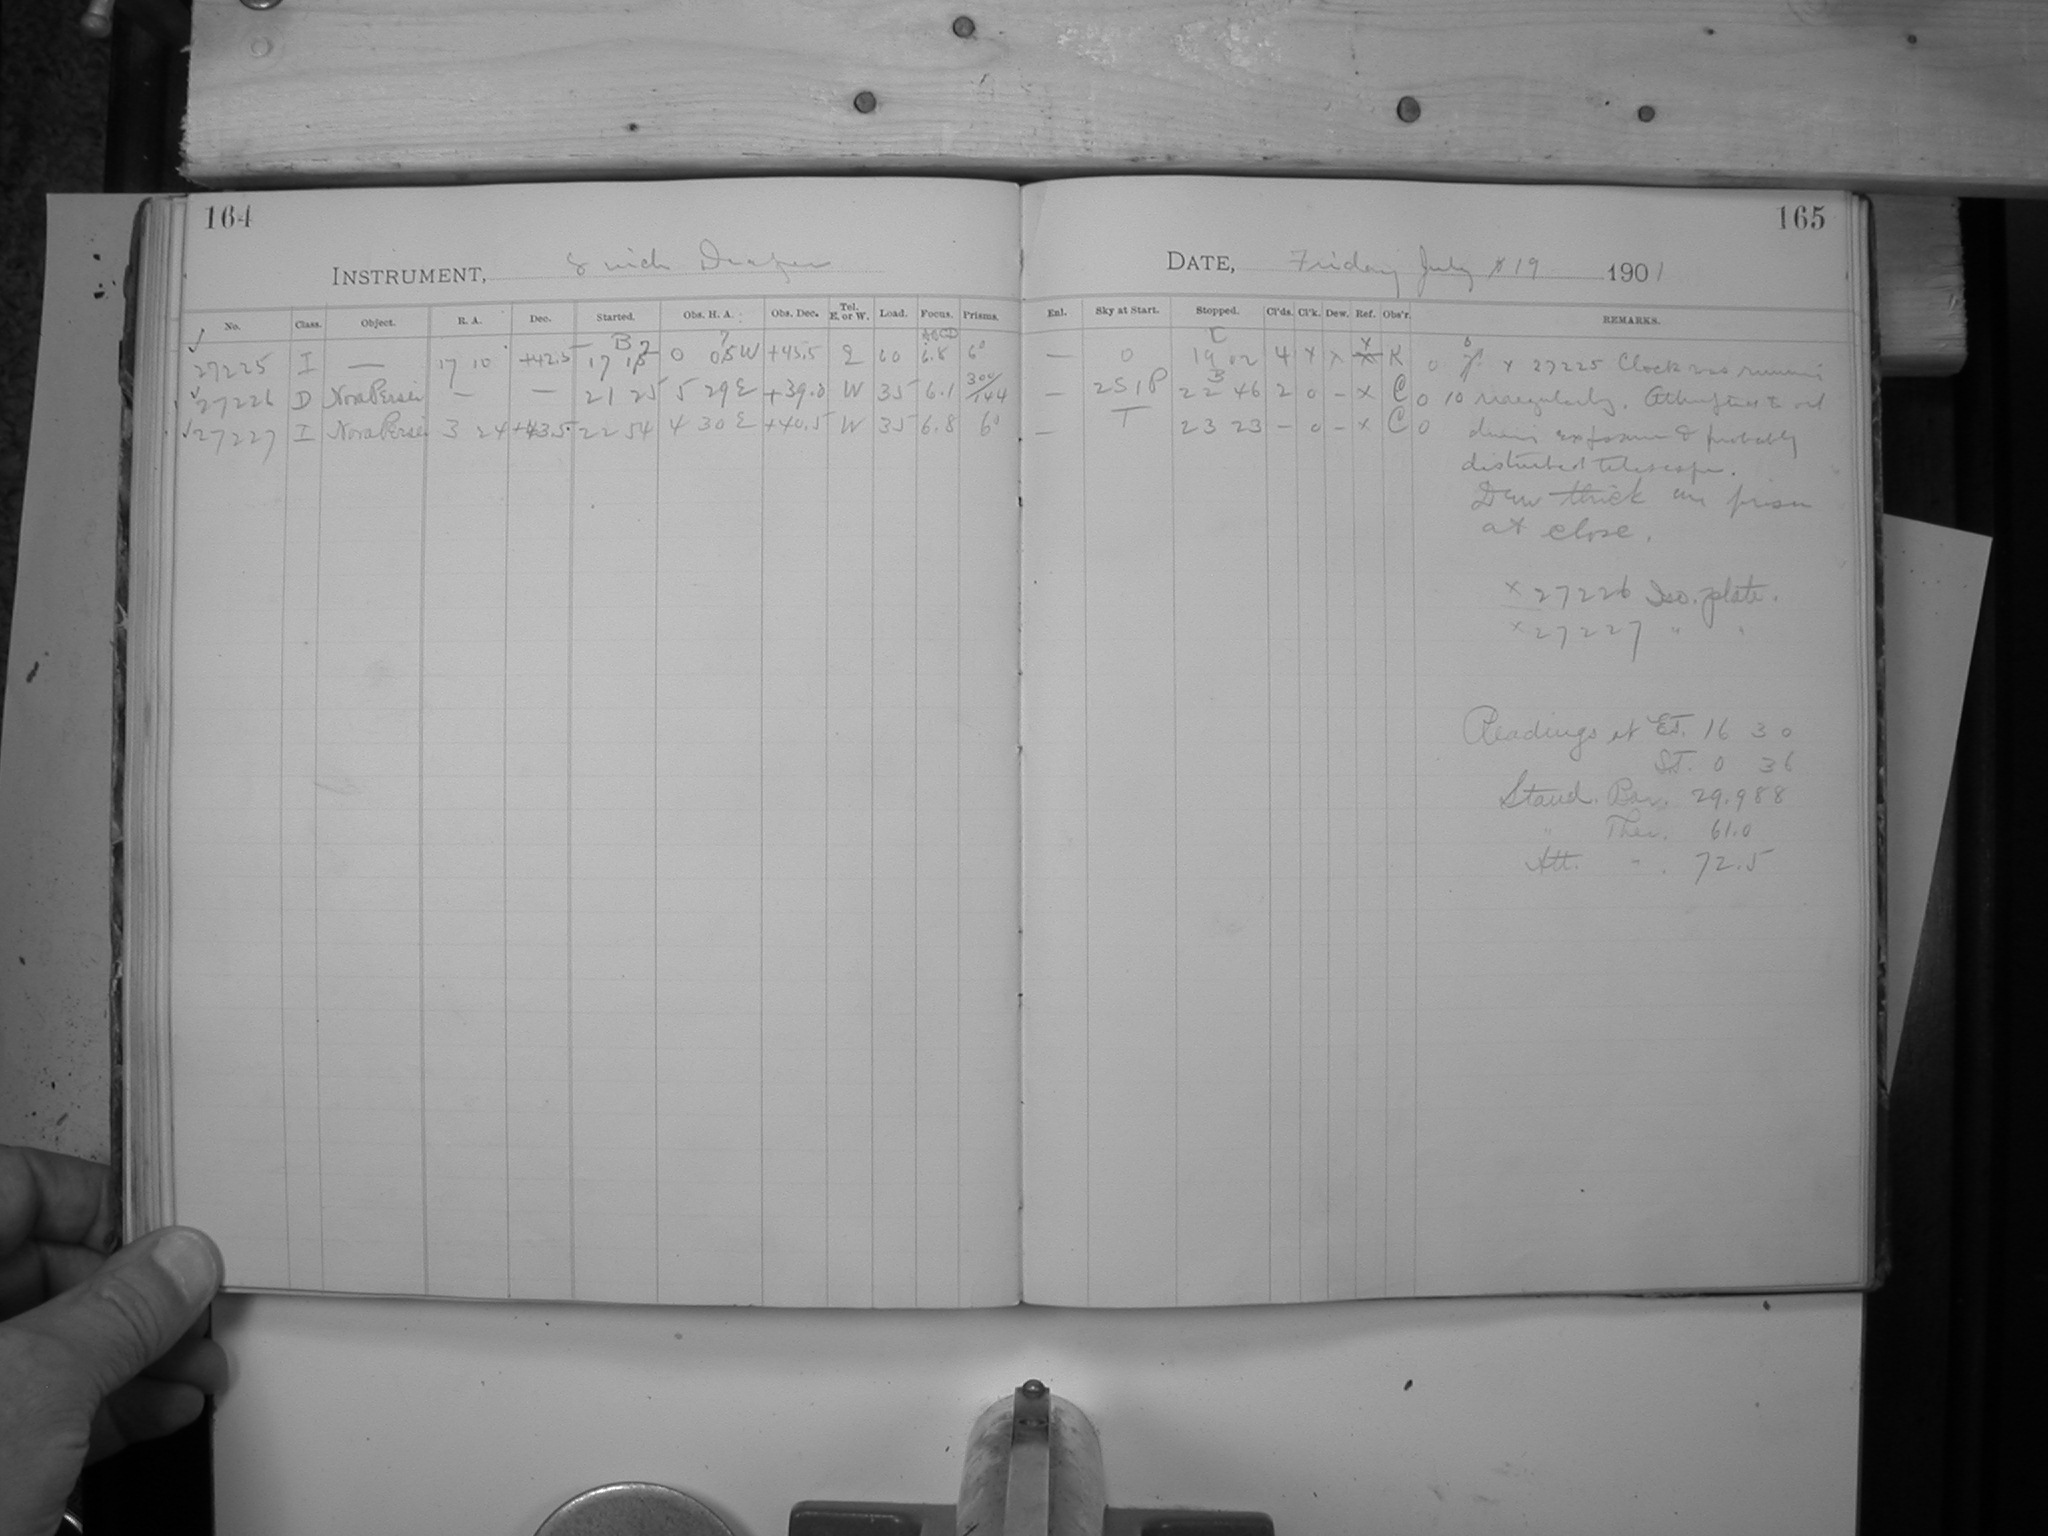 164
INSTRUMENT, 8 inch Draper
No. Class. Object. R. A. Dec. Started. Obs. H. A. Obs. Dec. Tel. E. or W. Load. Focus. Prisms.
27225 I — 17 10 +42.5 17 0 05 W +45.5 E 60 6.8 6°
27226 D Nova Persei — — 21 25 5 29 E +39.0 W 35 6.1 300/144
27227 I Nova Persei 3 24 +43.5 22 54 4 30 E +40.5 W 35 6.8 6°
165
DATE, Friday July 19 1901
Enl. Sky at Start. Stopped. Cl'ds. Cl'k. Dew. Ref. Obs'r. REMARKS.
— 0 19 02 4 x x x K 0 x 27225 Clock was running
— 2S1P 22 46 2 0 - x C 0 10 irregularly. Attempted to oil
— T 23 23 - 0 - x C 0 during exposure & probably
disturbed telescope.
Dew thick on prism
at close.
x 27226 Iso. plate.
x 27227 " "
Readings at E.T. 16 30
S.T. 0 36
Stand. Bar. 29.988
" Ther. 61.0
Att. " . 72.5